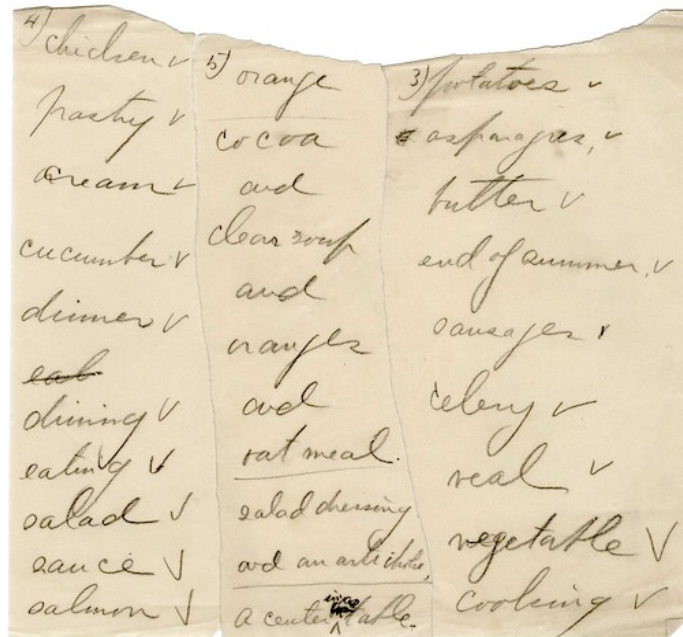 4) chicken ✓
pastry ✓
cream ✓
cucumber ✓
dinner ✓
eat
dining ✓
eating ✓
salad ✓
sauce ✓
salmon ✓
5) orange
cocoa
and
clear soup
and
oranges
and
oat meal.
salad dressing
and an artichoke,
a center in a table.
3) potatoes ✓
asparagus, ✓
butter ✓
end of summer, ✓
sausages ✓
celery ✓
veal ✓
vegetable ✓
cooking ✓